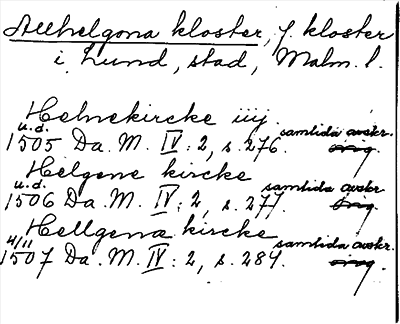 Allhelgona kloster, f. kloster
i Lund, stad, Malm. l.
Helnekircke iiij.
samtida avskr.
u.d.
1505 Da. M. IV: 2, s. 276. orig.
Helgene kircke
samtida avskr.
u.d.
1506 Da. M. IV: 2, s. 277. orig.
Hellgenæ kircke
samtida avskr.
4/11
1507 Da. M. IV: 2, s. 284. orig.